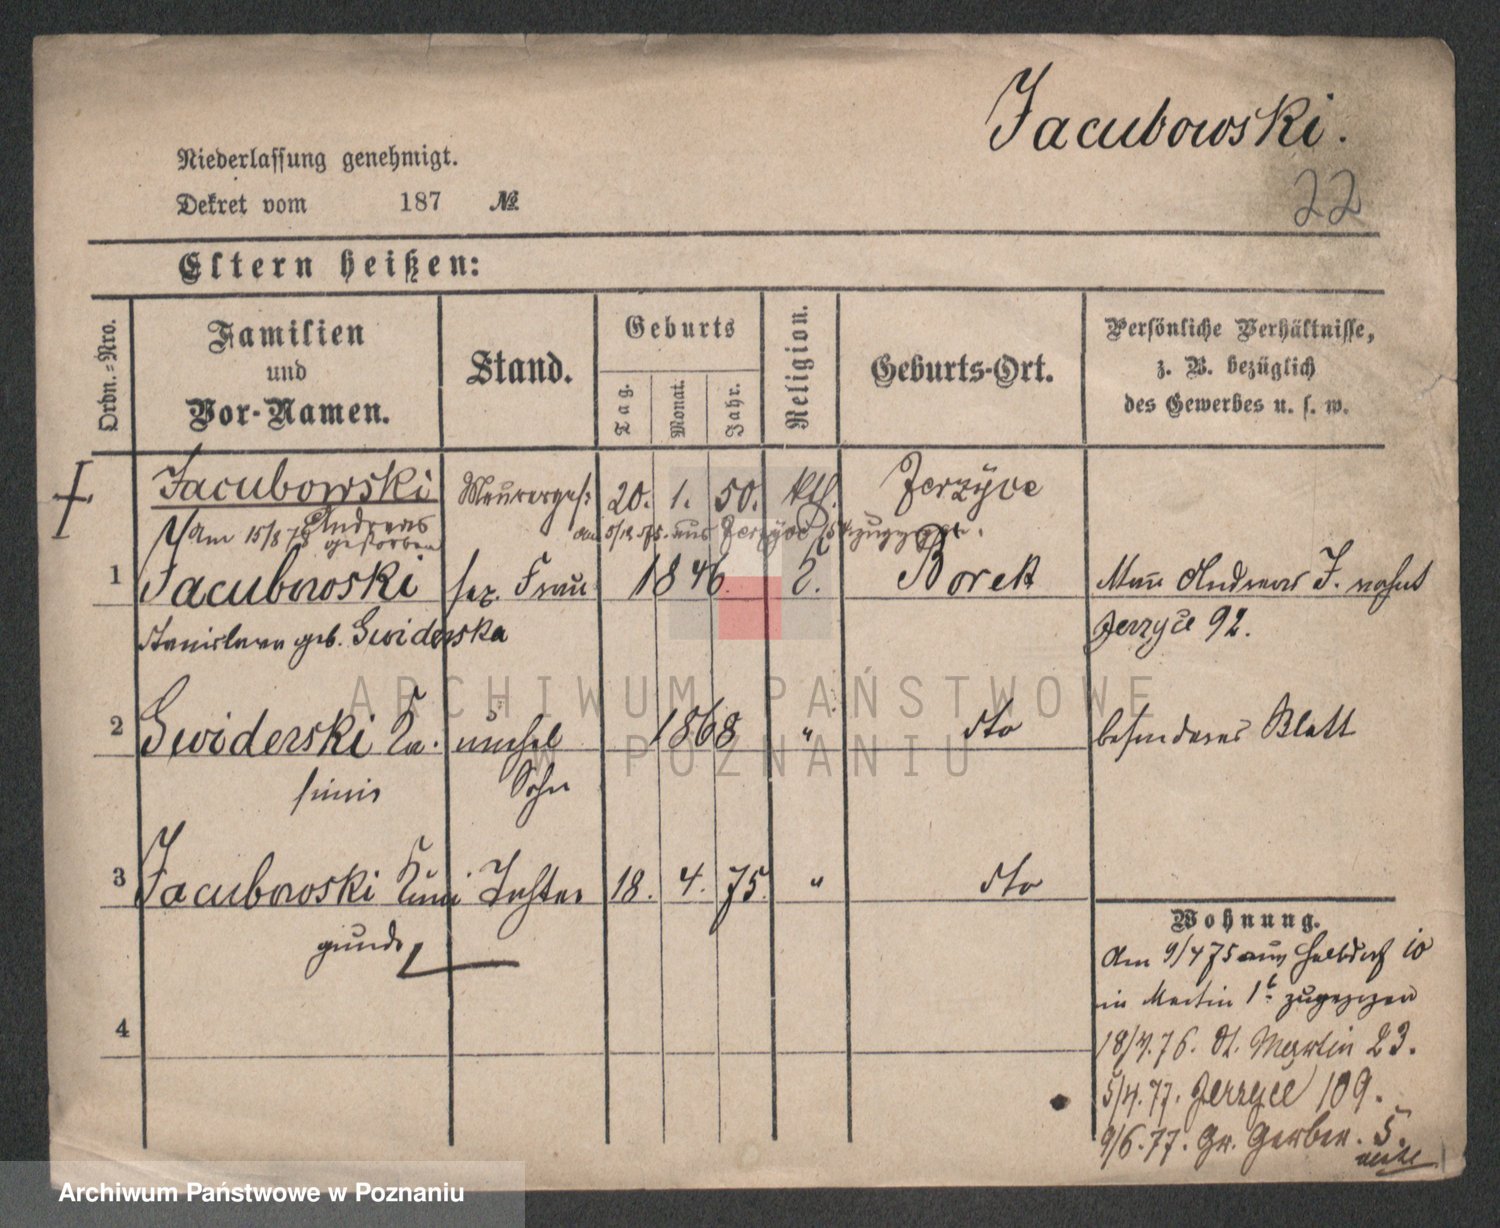 Jacubowski.
22
Niederlassung genehmigt.
Dekret vom 187 №
Eltern heißen:
Ordn.-Nro.
Familien
und
Vor-Namen.
Stand.
Geburts
Tag.
Monat.
Jahr.
Religion.
Geburts-Ort.
Persönliche Verhältnisse,
z. B. bezüglich
des Gewerbes u. s. w.
Jacubowski Maurerges: 20. 1. 50. ktl. Jerzyce
Andreas
am 15/8 gestorben
am 5/12 75. aus Jerzyce zugezogen.
1 Jacubowski sep. Frau 1846. k. Borek Mann Andreas J. wohnt
Stanislawa geb. Swiderska Jerzyce 92.
2 Swiderski Ka- unehel 1868 " dto besonderes Blatt
simir Sohn
3 Jacubowski Kuni Tochter 18. 4. 75. " dto
gunde
4
Wohnung.
Am 9/4 75 aus 10
in Martin 1b zugezogen
18/4.76. St. Martin 23.
5/4.77. Jerzyce 109.
9/6.77. Gr. Gerber. 5.
ARCHIWUM PAŃSTWOWE
W POZNANIU
Archiwum Państwowe w Poznaniu